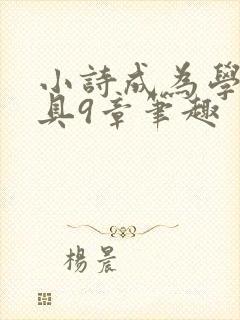 小詩成為學
具9章筆趣
楊晨